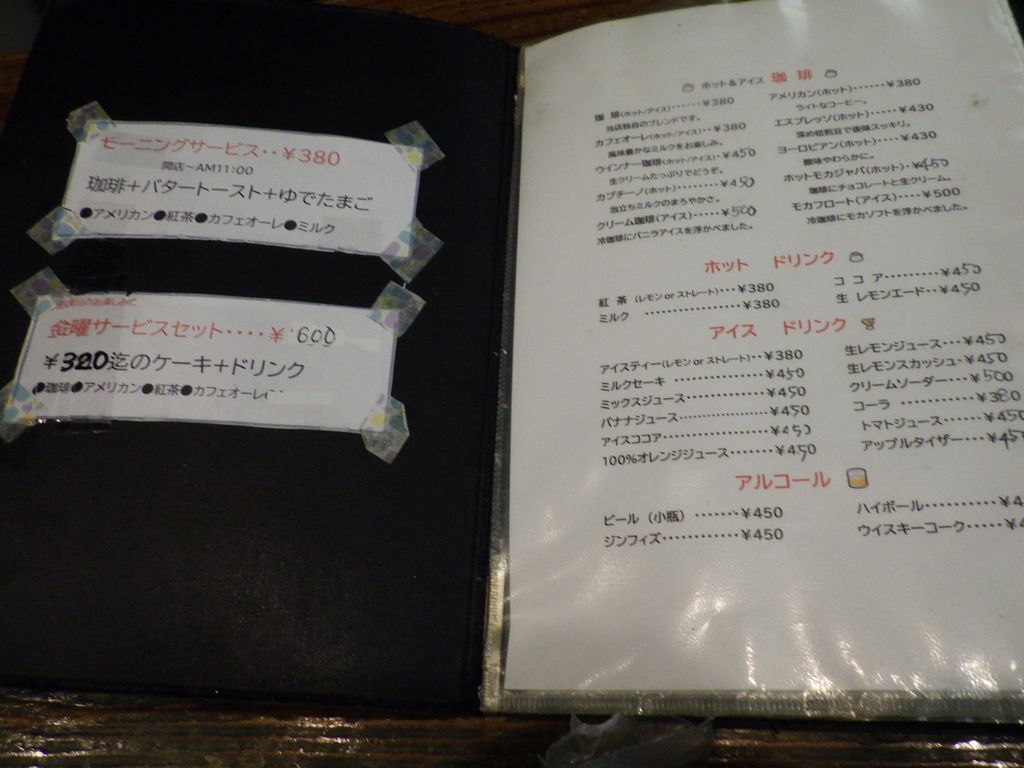 モーニングサービス‥¥380
開店~AM11:00
珈琲+バタートースト+ゆでたまご
●アメリカン●紅茶●カフェオーレ●ミルク
金曜サービスセット‥‥¥600
¥320迄のケーキ+ドリンク
●珈琲●アメリカン●紅茶●カフェオーレ
ホット&アイス 珈琲
珈琲(ホット/アイス)‥‥‥¥380
当店独自のブレンドです。
カフェオーレ(ホット/アイス)‥¥380
風味豊かなミルクをお楽しみ。
ウインナー珈琲(ホット/アイス)‥¥450
生クリームたっぷりでどうぞ。
カプチーノ(ホット)‥‥‥‥¥450
泡立ちミルクのまろやかさ。
クリーム珈琲(アイス)‥‥‥¥500
冷珈琲にバニラアイスを浮かべました。
アメリカン(ホット)‥‥‥‥¥380
ライトなコーヒー。
エスプレッソ(ホット)‥‥‥¥430
深め焙煎豆で後味スッキリ。
ヨーロピアン(ホット)‥‥‥¥430
酸味やわらかに。
ホットモカジャバ(ホット)‥¥450
珈琲にチョコレートと生クリーム。
モカフロート(アイス)‥‥‥¥500
冷珈琲にモカソフトを浮かべました。
ホット ドリンク
紅茶(レモンorストレート)‥‥¥380
ミルク ‥‥‥‥‥‥‥‥¥380
ココア‥‥‥‥‥¥450
生レモンエード‥‥¥450
アイス ドリンク
アイスティー(レモンorストレート)‥¥380
ミルクセーキ ‥‥‥‥‥‥¥450
ミックスジュース‥‥‥‥‥¥450
バナナジュース‥‥‥‥‥‥¥450
アイスココア‥‥‥‥‥‥‥¥450
100%オレンジジュース‥‥‥¥450
生レモンジュース‥‥¥450
生レモンスカッシュ‥¥450
クリームソーダー‥‥¥500
コーラ ‥‥‥‥‥‥¥380
トマトジュース‥‥‥¥450
アップルタイザー‥‥¥450
アルコール
ビール(小瓶)‥‥‥‥¥450
ジンフィズ‥‥‥‥‥‥¥450
ハイボール‥‥‥‥‥¥4
ウイスキーコーク‥‥¥4